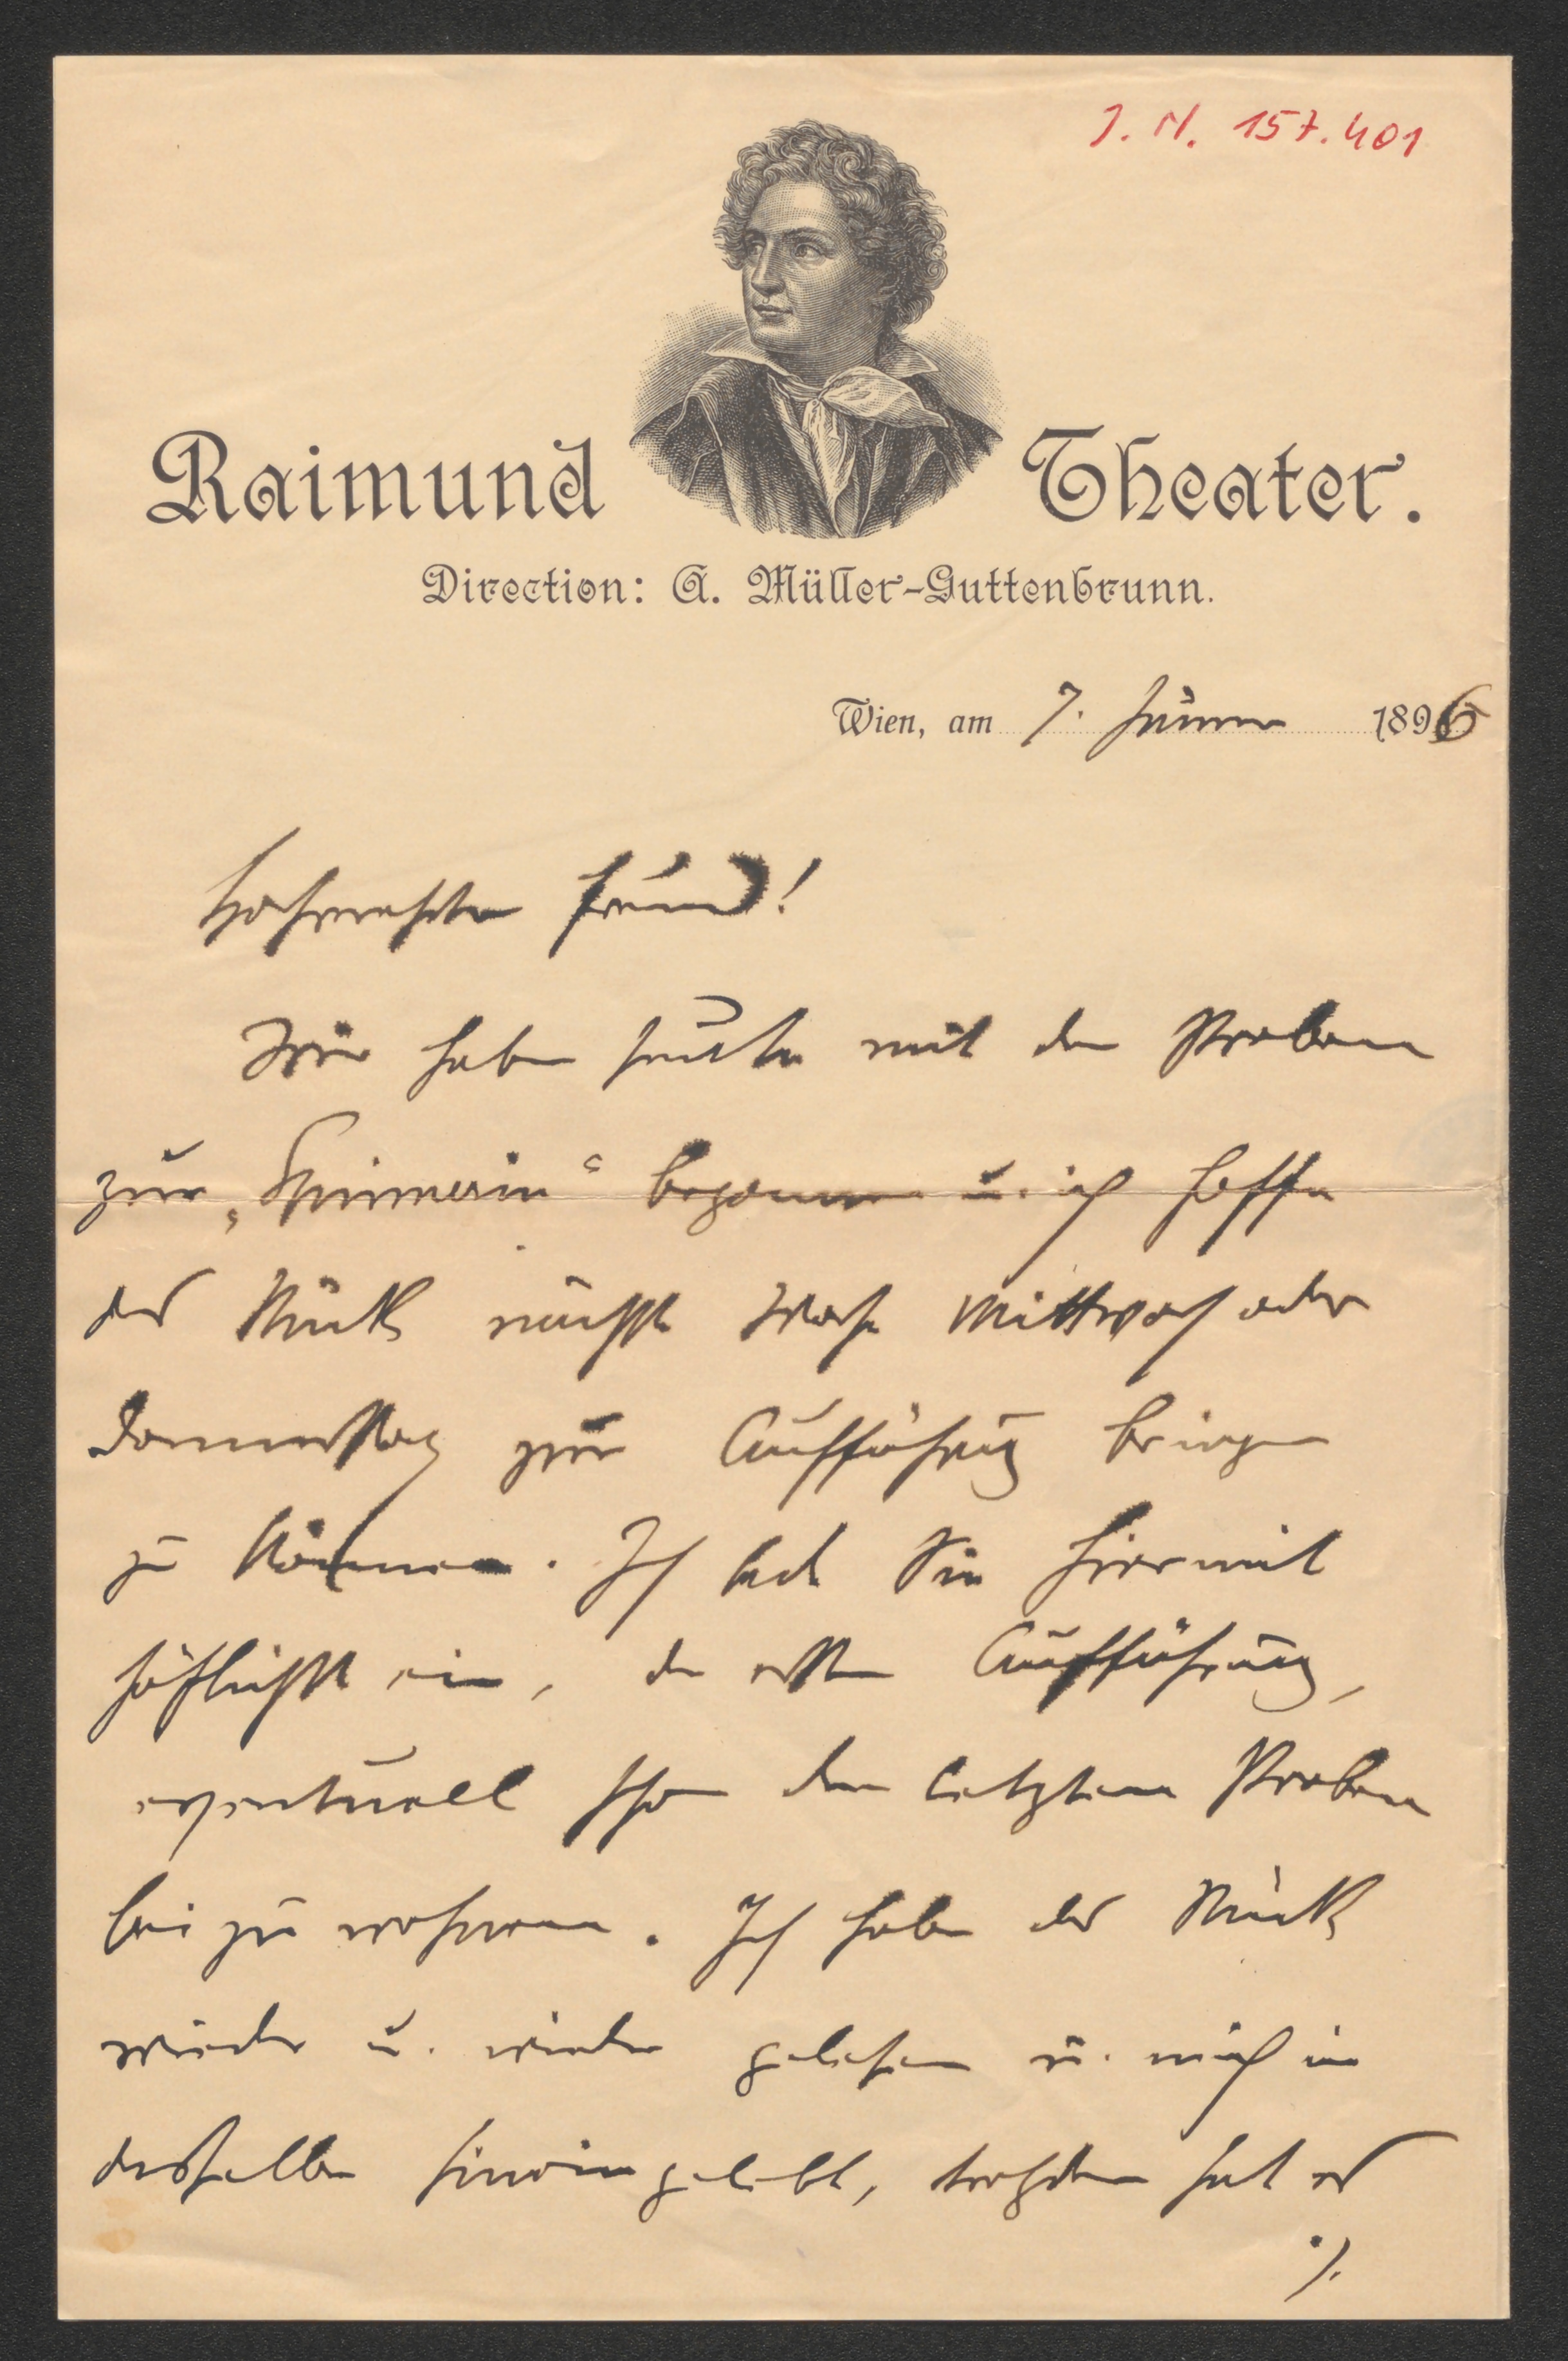 J. N. 157.401
Raimund Theater.
Direction: A. Müller-Guttenbrunn.
Wien, am 7. Jänner 1896
Hochverehrter Freund!
Wir haben heute mit den Proben
zur „Spinnerin“ begonnen u. ich hoffe
das Stück nächste Woche Mittwoch oder
Donnerstag zur Aufführung bringen
zu können. Ich lade Sie hiermit
höflichst ein, der ersten Aufführung,
eventuell schon den letzten Proben
bei zu wohnen. Ich habe das Stück
wieder u. wieder gelesen u. mich in
dasselbe hineingelebt, trotzdem hat es
./.